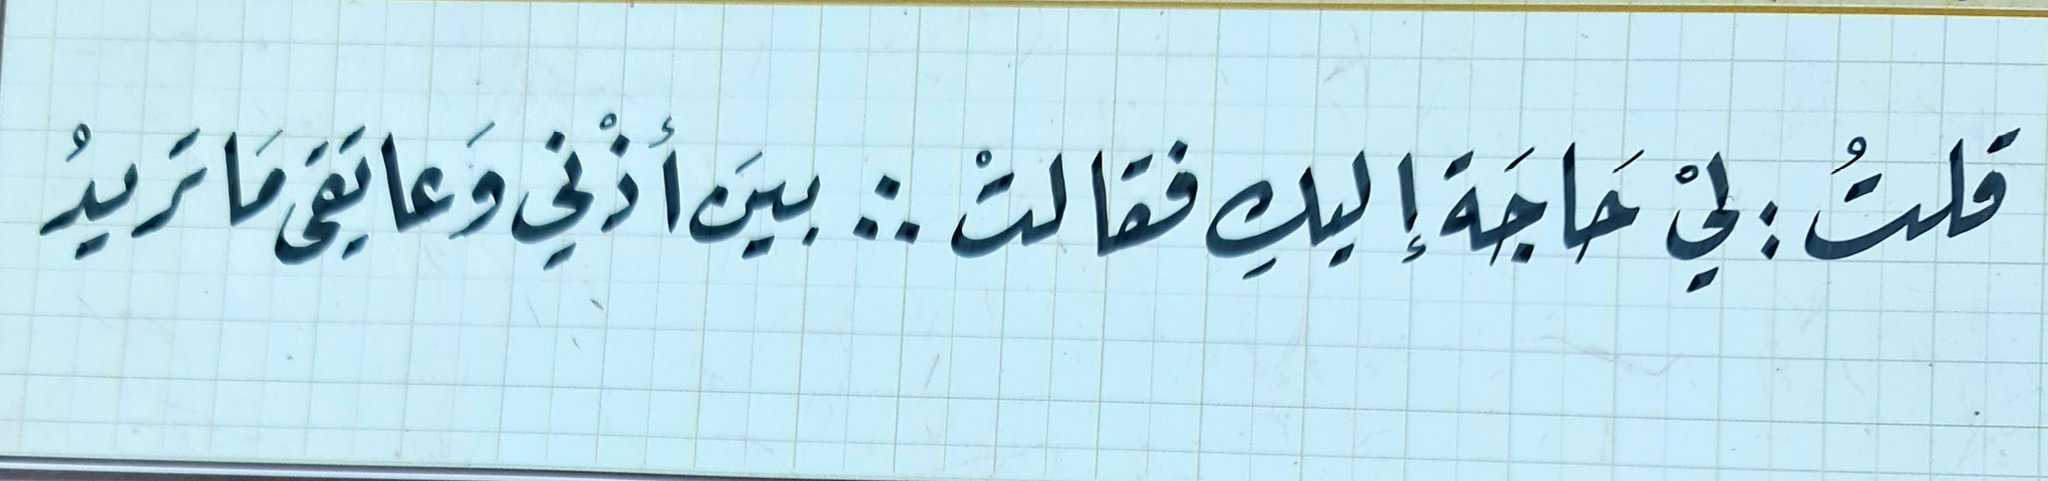 قلتُ : ليْ حَاجَة إليكِ فقالتْ .:. بينَ أذْني وَعاتِقي مَا تَريدُ